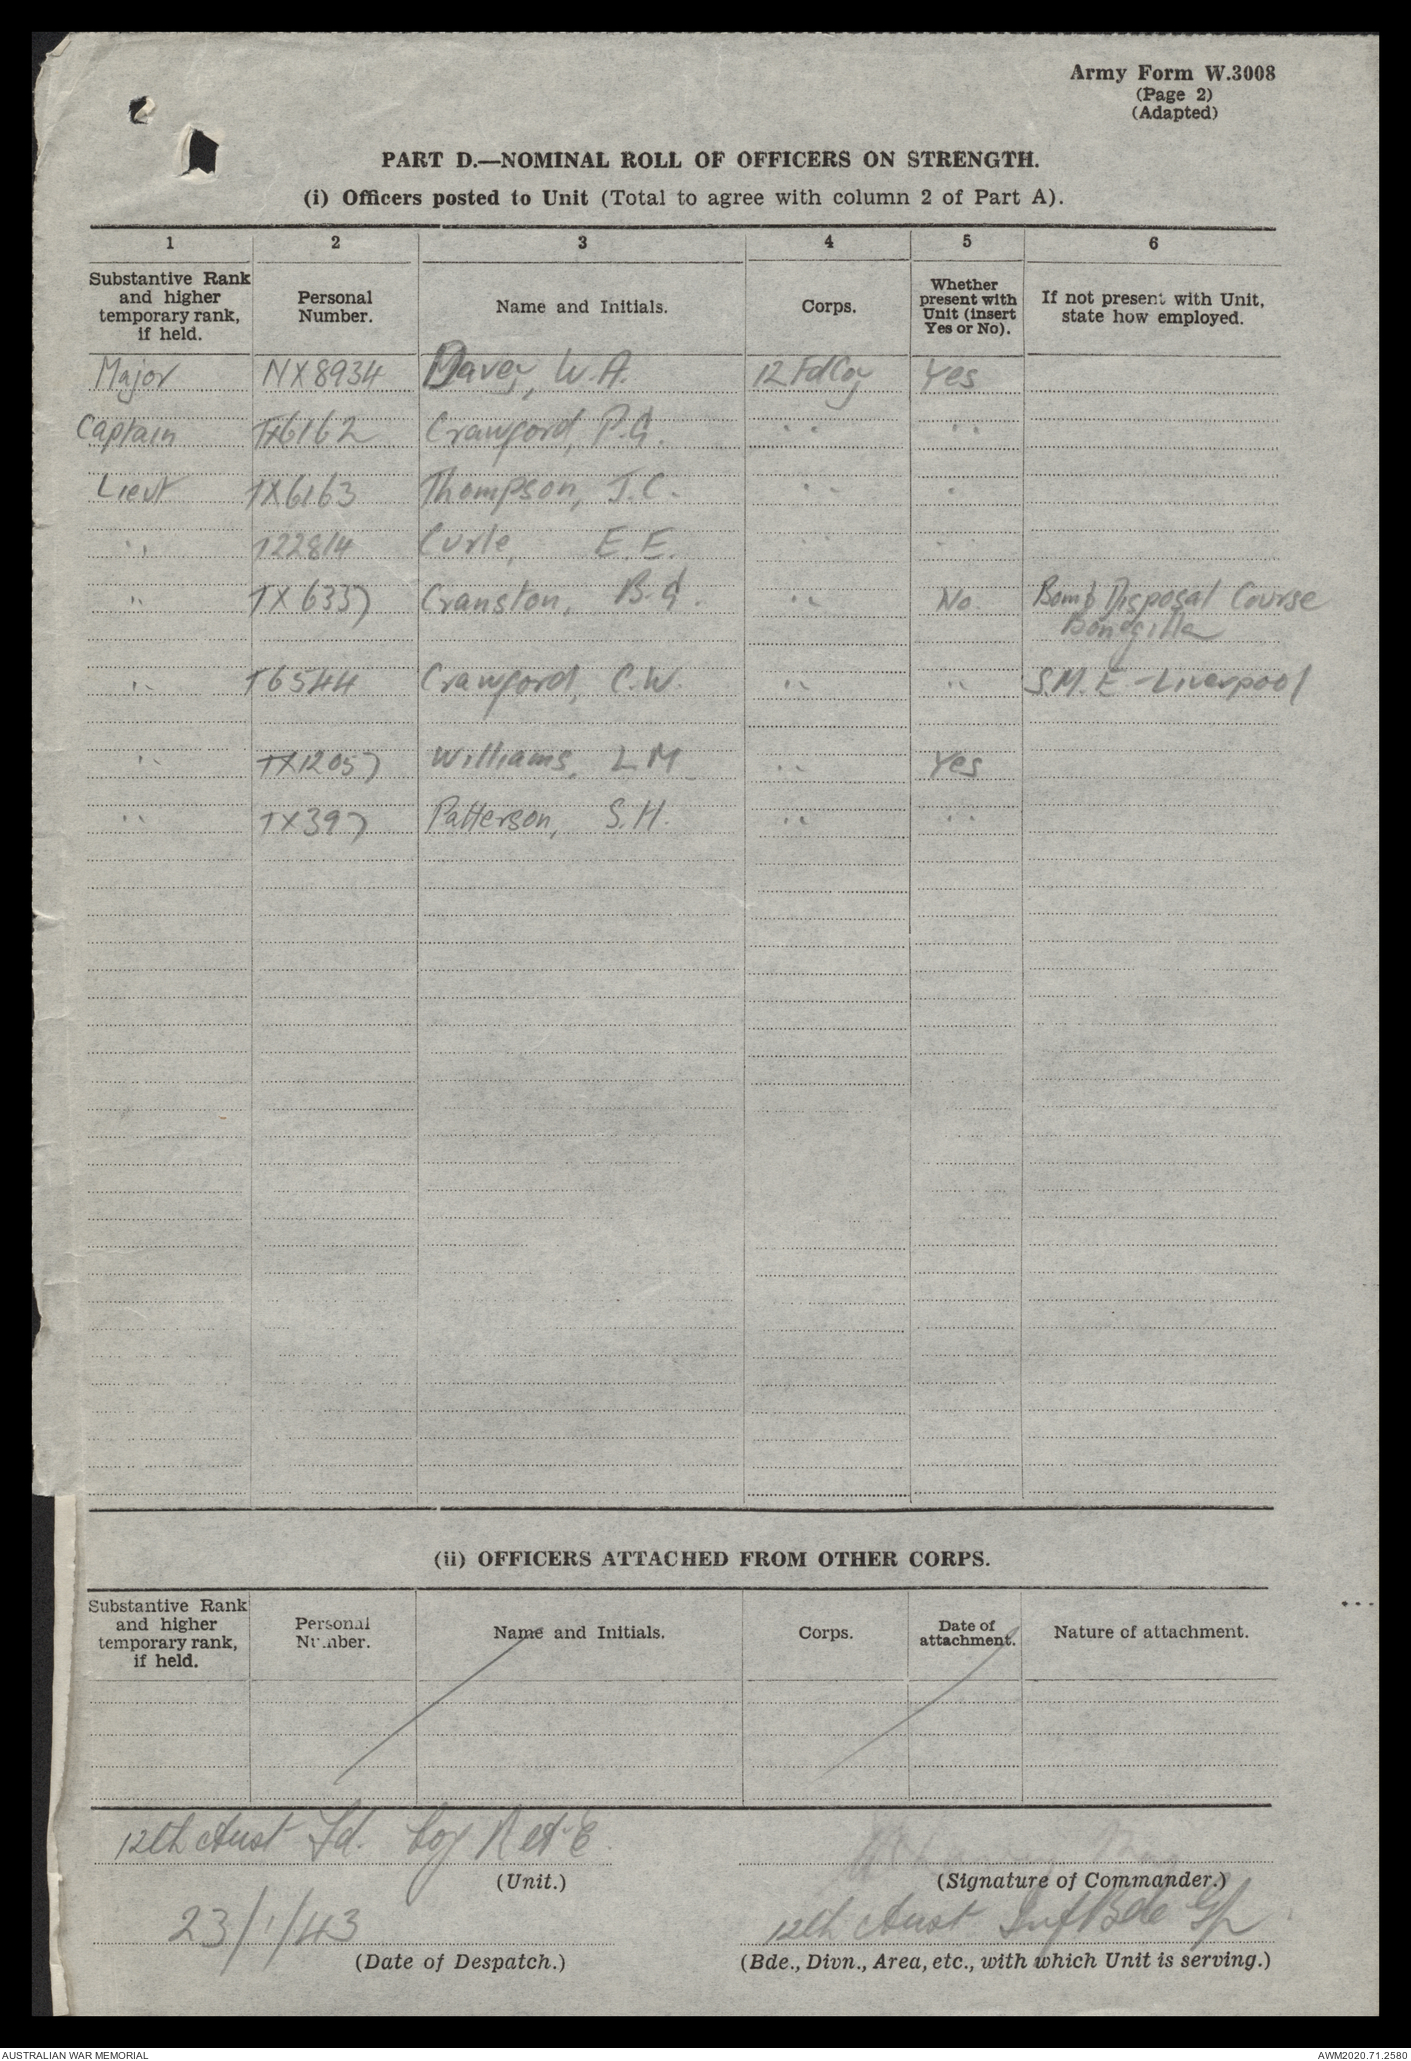 Army Form W.3008
(Page 2)
(Adapted)
PART D.—NOMINAL ROLL OF OFFICERS ON STRENGTH.
(i) Officers posted to Unit (Total to agree with column 2 of Part A).
1 2 3 4 5 6
Substantive Rank and higher temporary rank, if held. Personal Number. Name and Initials. Corps. Whether present with Unit (insert Yes or No). If not present with Unit, state how employed.
Major NX8934 Davey, W.A. 12 Fd Coy Yes
Captain TX6162 Crawford, P.G. " "
Lieut TX6163 Thompson, J.C. " "
" T22814 Curle, E.E. " "
" TX6337 Cranston, B.G. " No. Bomb Disposal Course
Bonegilla
" T6544 Crawford, C.W. " " S.M.E. - Liverpool
" TX12057 Williams, L M " Yes
" TX397 Patterson, S.H. " "
(ii) OFFICERS ATTACHED FROM OTHER CORPS.
Substantive Rank and higher temporary rank, if held. Personal Number. Name and Initials. Corps. Date of attachment. Nature of attachment.
12th Aust Fd. Coy R A E
(Unit.) (Signature of Commander.)
23/1/43 12th Aust Inf Bde Gp
(Date of Despatch.) (Bde., Divn., Area, etc., with which Unit is serving.)
AUSTRALIAN WAR MEMORIAL AWM2020.71.2580